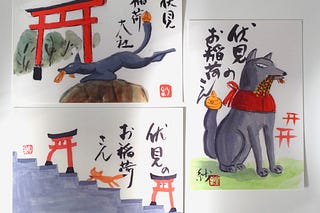 伏見
稲荷
大社
伏見の
お稲荷
さん
伏見の
お稲荷さん